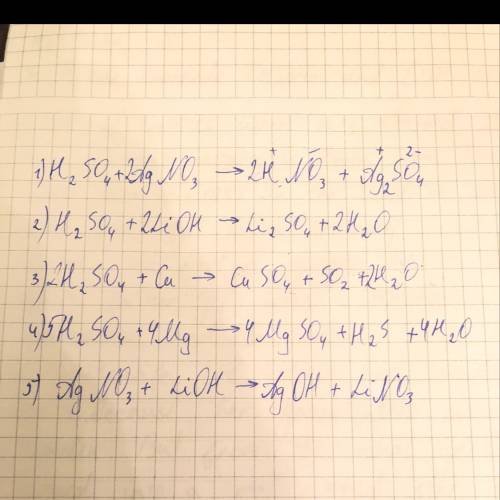 1) H₂SO₄ + 2AgNO₃ → 2H⁺NO₃⁻ + Ag₂⁺SO₄²⁻
2) H₂SO₄ + 2LiOH → Li₂SO₄ + 2H₂O
3) 2H₂SO₄ + Cu → CuSO₄ + SO₂ + 2H₂O
4) 5H₂SO₄ + 4Mg → 4MgSO₄ + H₂S + 4H₂O
5) AgNO₃ + LiOH → AgOH + LiNO₃